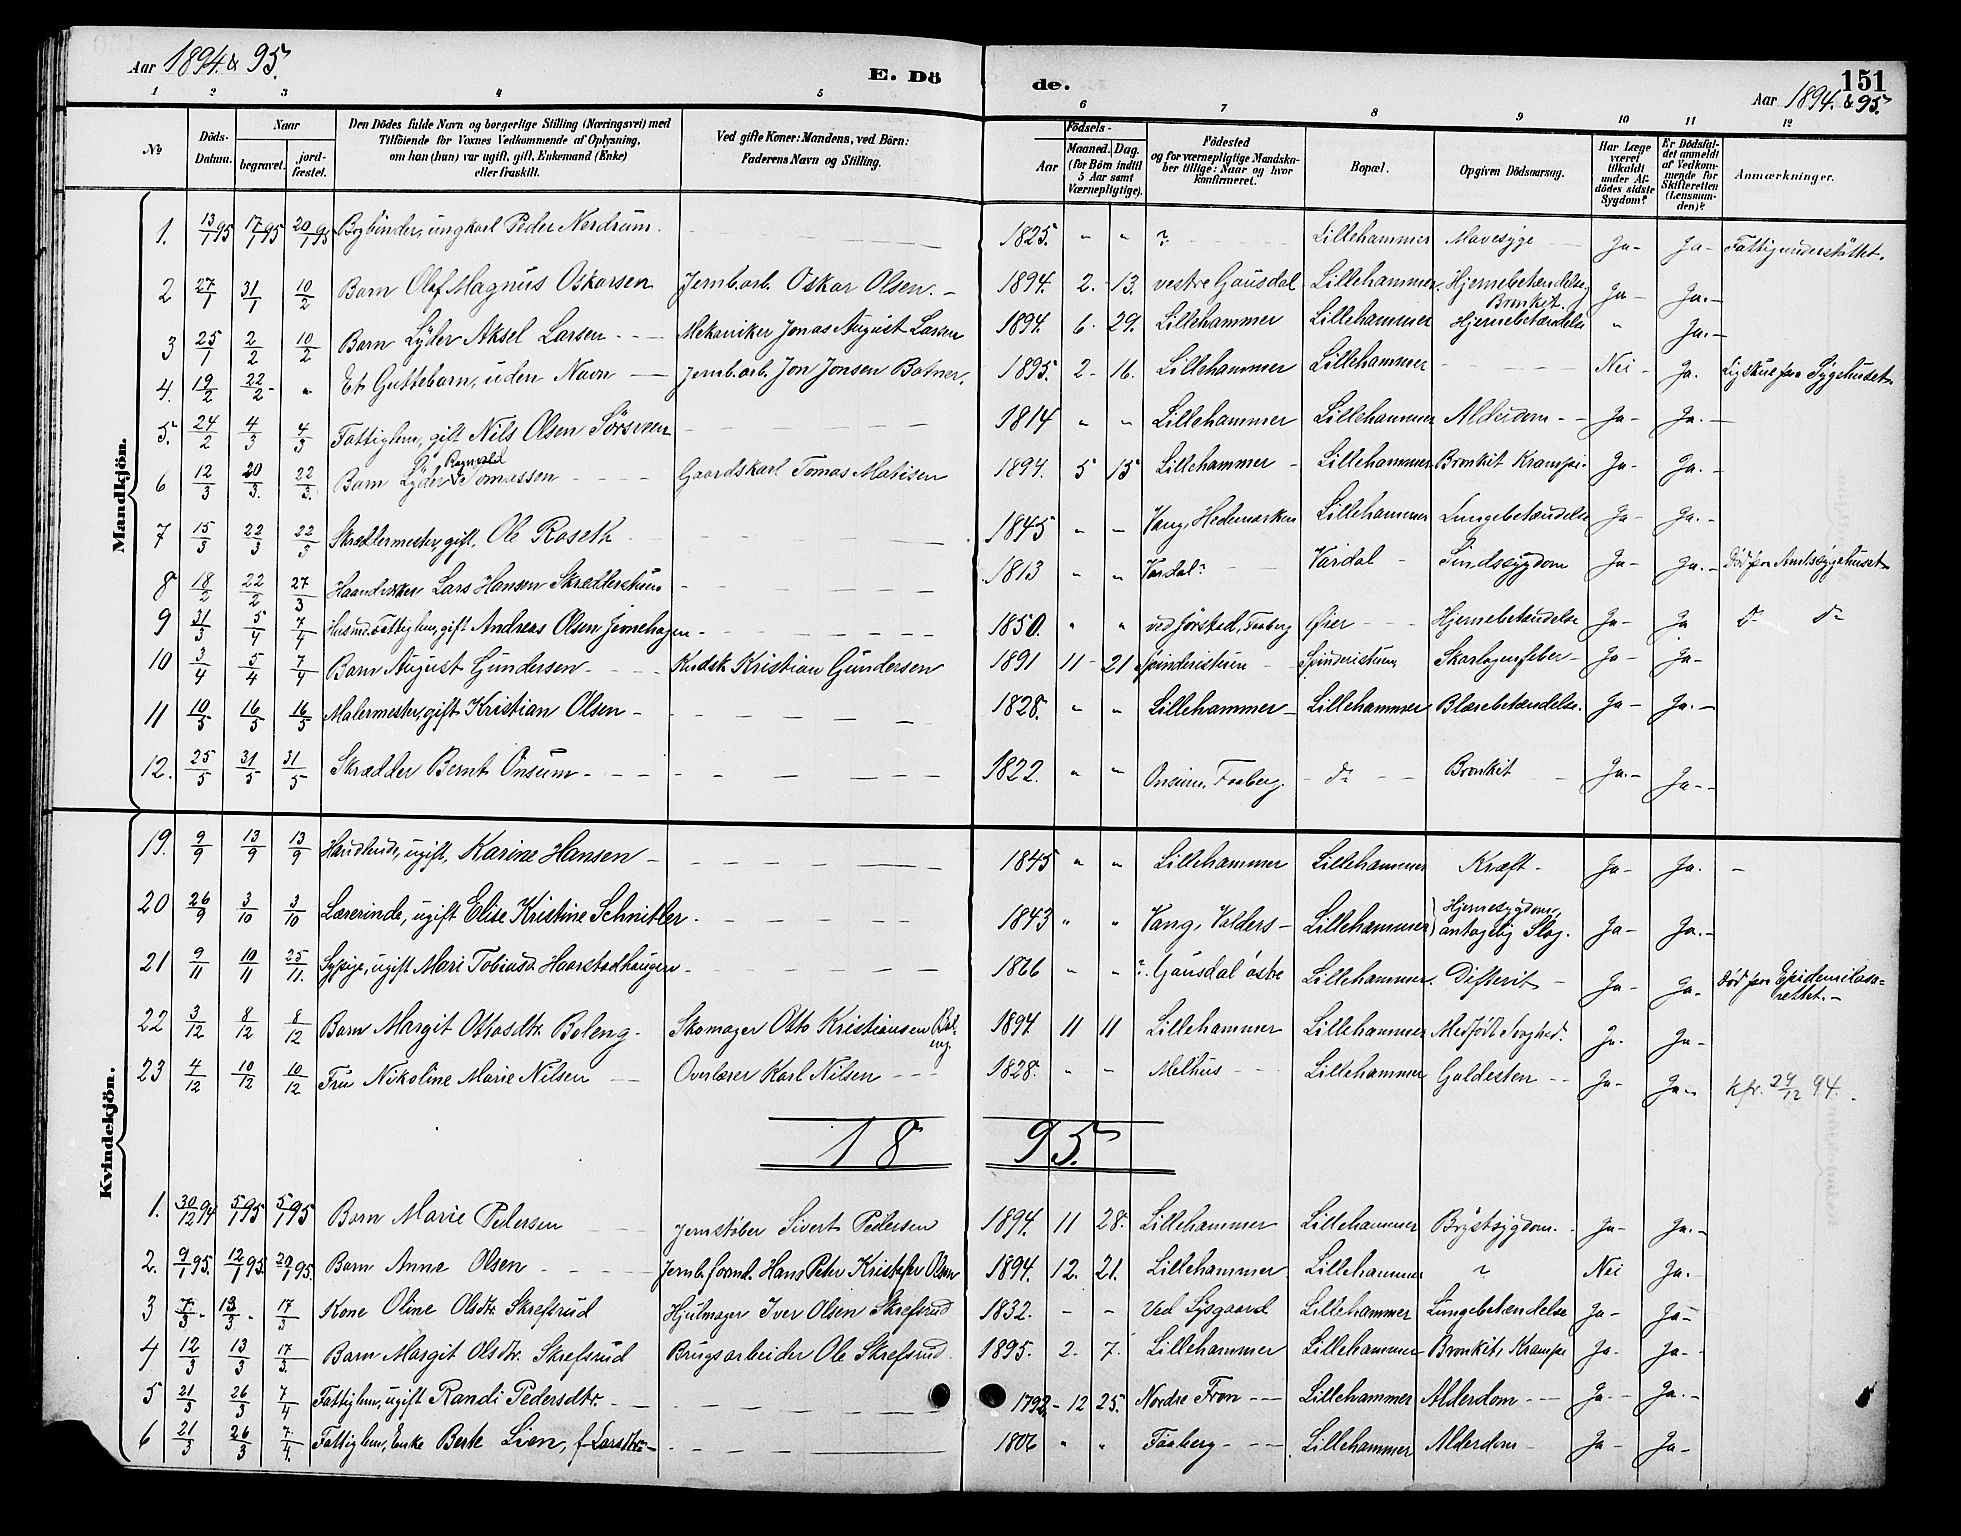 Aar 1894. & 95.
E. Dö
de.
151
Aar 1894. & 95.
1 2 3 4 5 6 7 8 9 10 11 12
No
Döds-Datum.
Naar
begravet.
jord-fæstet.
Den Dödes fulde Navn og borgerlige Stilling (Næringsvei) med
Tilföiende for Voxnes Vedkommende af Oplysning,
om han (hun) var ugift, gift, Enkemand (Enke)
eller fraskilt.
Ved gifte Koner: Mandens, ved Börn:
Faderens Navn og Stilling.
Födsels-
Aar
Maaned. Dag.
(for Börn indtil
5 Aar samt
Værnepligtige).
Födested
og for værnepligtige Mandska-
ber tillige: Naar og hvor
konfirmeret.
Bopæl.
Opgiven Dödsaarsag.
Har Læge
været
tilkaldt
under Af-
dödes sidste
Sygdom?
Er Dödsfal-
det anmeldt
af Vedkom-
mende for
Skifteretten
(Lensman-
den)?
Anmærkninger.
Mandkjön.
1. 13/1 95 17/1 95 20/1 95 Bogbinder, ungkarl Peder Nordrum. 1825. " " ? Lillehammer Mavesyge Ja - Ja - Fattigunderstøttet.
2 27/1 31/1 10/2 Barn Olaf Magnus Oskarsen Jernb.arb. Oskar Olsen. 1894. 2. 13. vestre Gausdal Lillehammer. Hjernebetændelse, Bronkit. Ja - Ja. -
3 25/1 2/2 10/2 Barn Lyder Aksel Larsen Mekaniker Jonas August Larsen 1894. 6. 29. Lillehammer Lillehammer Hjernebetændelse " Ja. -
4. 19/2 22/2 - " Et Guttebarn, uden Navn Jernb.arb. Jon Jonsen Botner. 1895. 2 - 16. Lillehammer Lillehammer - Nei - Ja. Ligskue paa Sygehuset
5. 24/2 4/3 4/3 Fattiglem, gift Nils Olsen Sørsveen 1814 " " Lillehammer Lillehammer Alderdom - - Ja - Ja. -
6 12/3 20/3. 22/3. Barn Lyder Ragnvald Tomassen Gaardskarl Tomas Matisen 1894. 5 15 Lillehammer - Lillehammer Bronkit Krampe. Ja - Ja. -
7 15/3 22/3 22/3 Skrædlermester, gift, Ole Roseth 1845 " - Vang, Hedemarken Lillehammer Lungebetændelse Ja - Ja. -
8 18/2 22/2 27/3 Haandverker Lars Hansen Skrædlerstuen 1813 " " Vardal? Vardal - Sindssygdom Ja - Ja. - Død paa Amtssygehuset
9 31/3 5/4 7/4 Husmd. Fattiglem, gift Andreas Olsen Jemehagen 1850. " " ved Jørstad, Faaberg Øier Hjernebetændelse Ja - Ja do do
10 3/4 5/4 7/4 Barn August Gundersen Kudsk Kristian Gundersen 1891 11 - 21 Spinderistuen Spinderistuen Skarlagensfeber - Ja - Ja -
11 10/5 16/5 16/5 Malermester, gift Kristian Olsen 1828. " " Lillehammer - Lillehammer Blærebetændelse. Ja - Ja. -
12. 25/5 31/5 31/5 Skrædder Bernt Onsum 1822. " " Onsum, Faaberg. - do - Bronkit Ja. - Ja - -
Kvindekjön.
19. 9/9 13/9 13/9 Handlende, ugift, Karine Hansen 1845 " " Lillehammer Lillehammer Kræft - Ja - Ja. -
20 26/9 3/10 3/10 Lærerinde, ugift Elise Kristine Schnitler 1843 " " Vang, Valders - Lillehammer Hjernesygdom, antagelig Slag. Ja - Ja. -
21 9/11 10/11 25/11. Sypige, ugift Mari Tobiasd. Haarstadhaugen 1866 " " ? Gausdal østre Lillehammer. Difterit - Ja - Ja - Død paa Epidemilasa-rettet. -
22 3/12 8/12 8/12 Barn Margit Ottosdtr. Boleng - Skomager Otto Kristiansen Bol-eng. 1894. 11 11 Lillehammer Lillehammer Medfødt Svaghed. Ja. Ja -
23 4/12 10/12 10/12 Fru Nikoline Marie Nilsen Overlærer Karl Nilsen 1828. " - Melhus Lillehammer Galdesten - - Ja - Ja - kfr. 29/12 94.
18 95.
1. 30/12 94 5/1 95 5/1 95 Barn Marie Pedersen Jernstøber Sivert Pedersen 1894. 11 28. Lillehammer Lillehammer Brystsygdom. Ja - Ja. -
2. 9/1 95. 12/1 95. 20/1 95. Barn Anne Olsen Jernb.formd. Hans Peter Kristofer Olsen 1894. 12. 21. Lillehammer Lillehammer ? Nei Ja. -
3 7/3 - 13/3 - 17/3 Kone Oline Olsdtr. Skrefsrud Hjulmager Iver Olsen Skrefsrud 1832. - - Ved Lysgaard Lillehammer Lungebetændelse Ja - Ja -
4 12/3 13/3 17/3. Barn Margit Olsdtr. Skrefsrud Brugsarbeider Ole Skrefsrud 1895. 2. 7. Lillehammer Lillehammer Bronkit, Krampe Ja - Ja - -
5 21/3 26/3 7/4 Fattiglem, ugift Randi Pedersdtr. 1792. - 12 25. Nordre Fron - - Lillehammer Alderdom Ja - - Ja. -
6 21/3 26/3 7/4. Fattiglem, Enke Berte Lien, f. Larsdtr. 1806 " " Faaberg - - - Lillehammer Alderdom Ja - Ja -